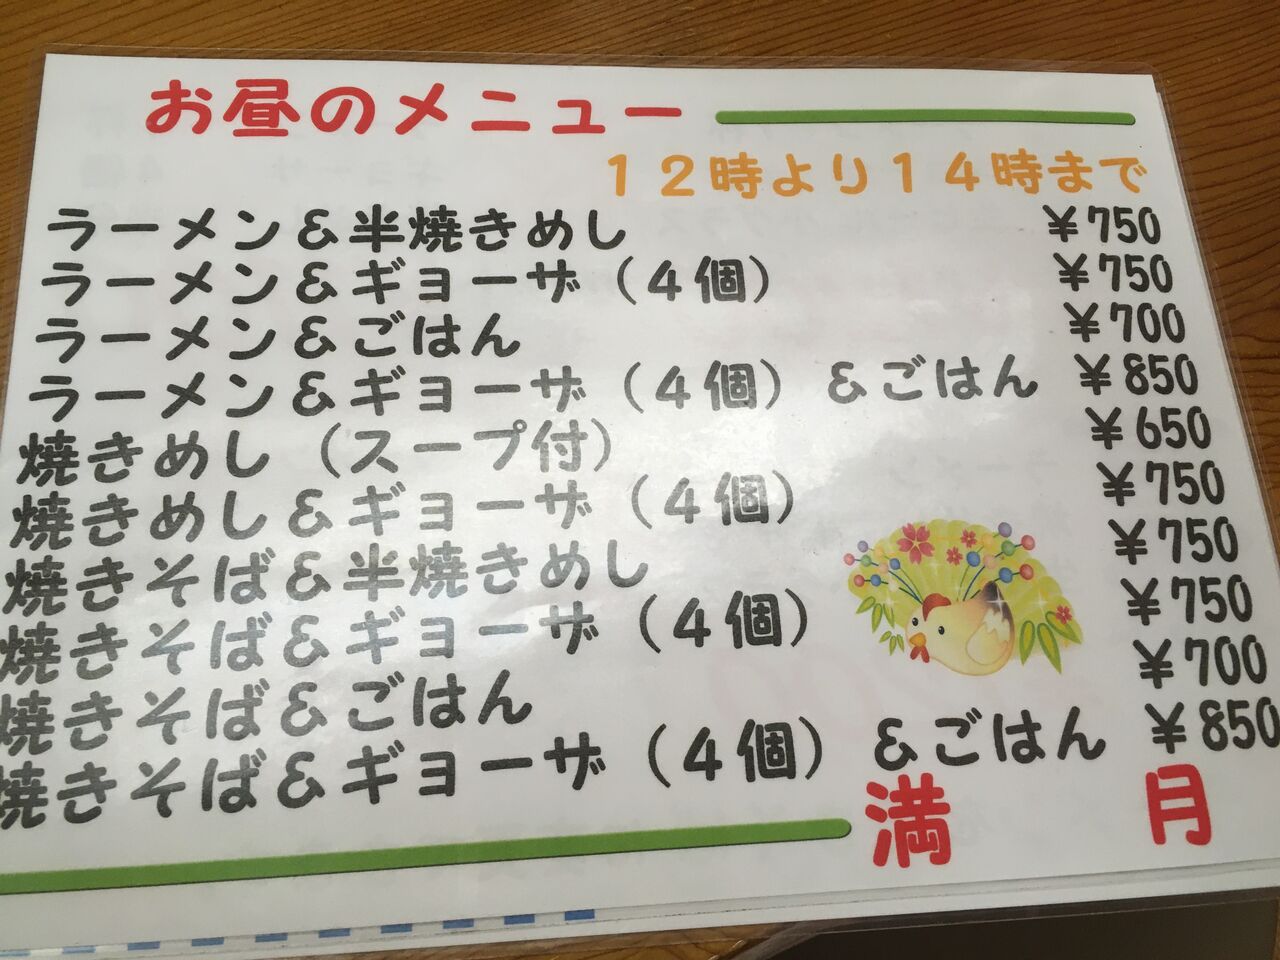 お昼のメニュー
１２時より１４時まで
ラーメン＆半焼きめし ￥750
ラーメン＆ギョーザ（４個） ￥750
ラーメン＆ごはん ￥700
ラーメン＆ギョーザ（４個）＆ごはん ￥850
焼きめし（スープ付） ￥650
焼きめし＆ギョーザ（４個） ￥750
焼きそば＆半焼きめし ￥750
焼きそば＆ギョーザ（４個） ￥750
焼きそば＆ごはん ￥700
焼きそば＆ギョーザ（４個）＆ごはん ￥850
満月